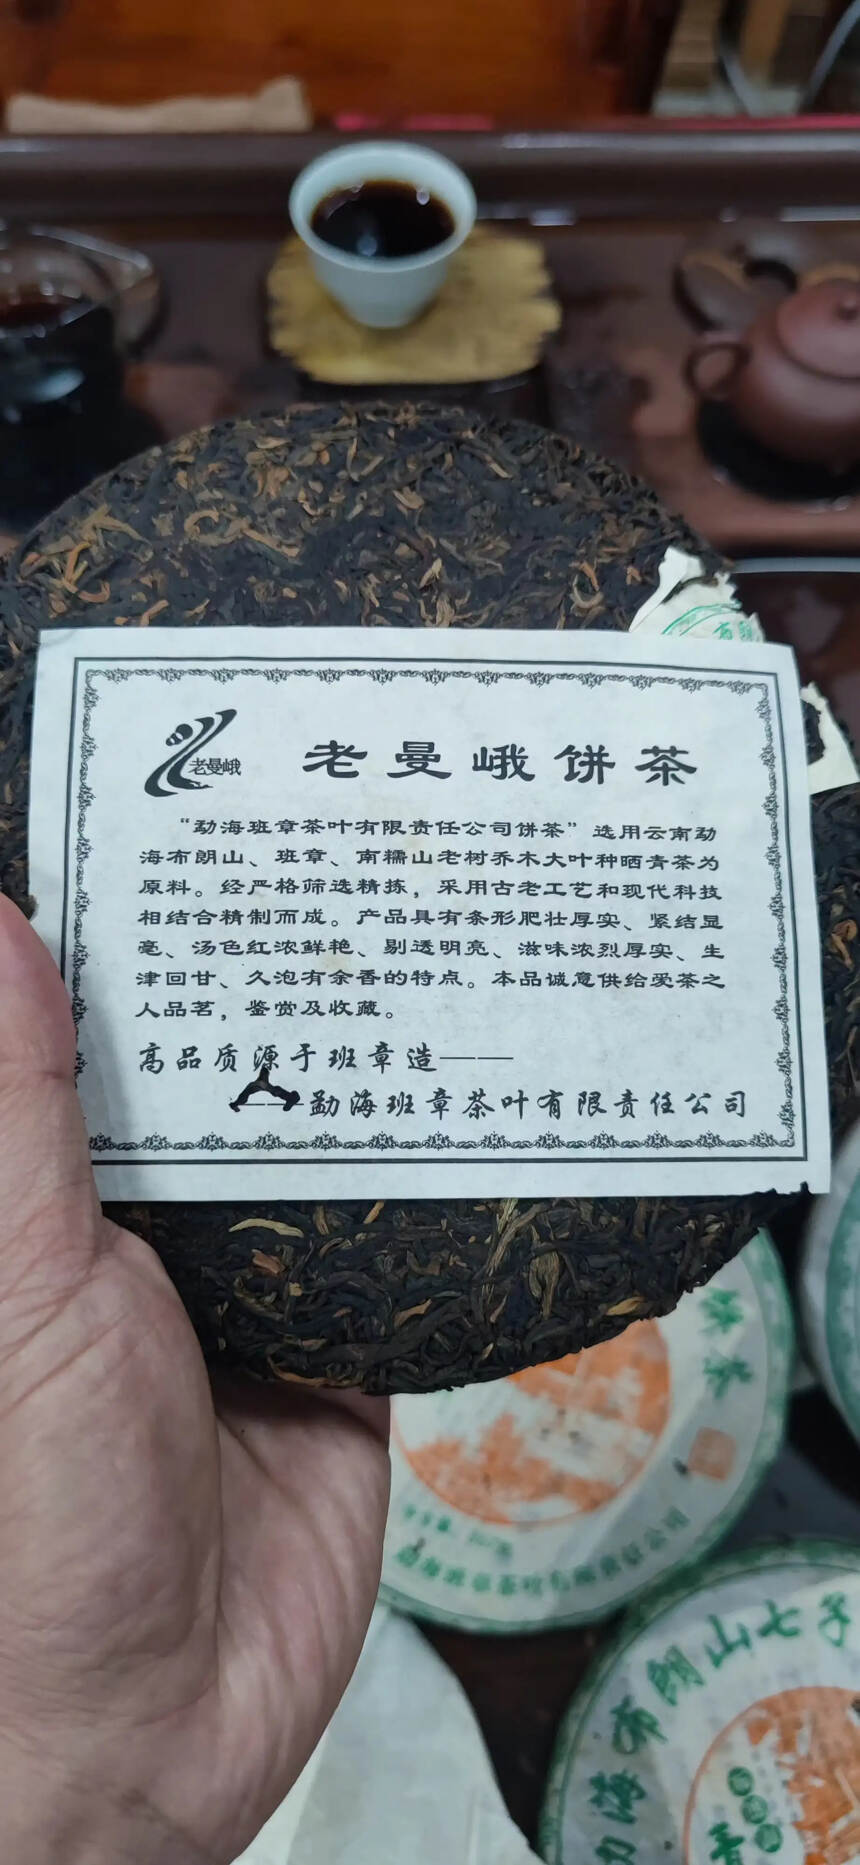 老曼峨
老曼峨饼茶
“勐海班章茶叶有限责任公司饼茶”选用云南勐
海布朗山、班章、南糯山老树乔木大叶种晒青茶为
原料。经严格筛选精拣，采用古老工艺和现代科技
相结合精制而成。产品具有条形肥壮厚实、紧结显
毫、汤色红浓鲜艳、剔透明亮、滋味浓烈厚实、生
津回甘、久泡有余香的特点。本品诚意供给爱茶之
人品茗，鉴赏及收藏。
高品质源于班章造——
——勐海班章茶叶有限责任公司
海布朗山七子